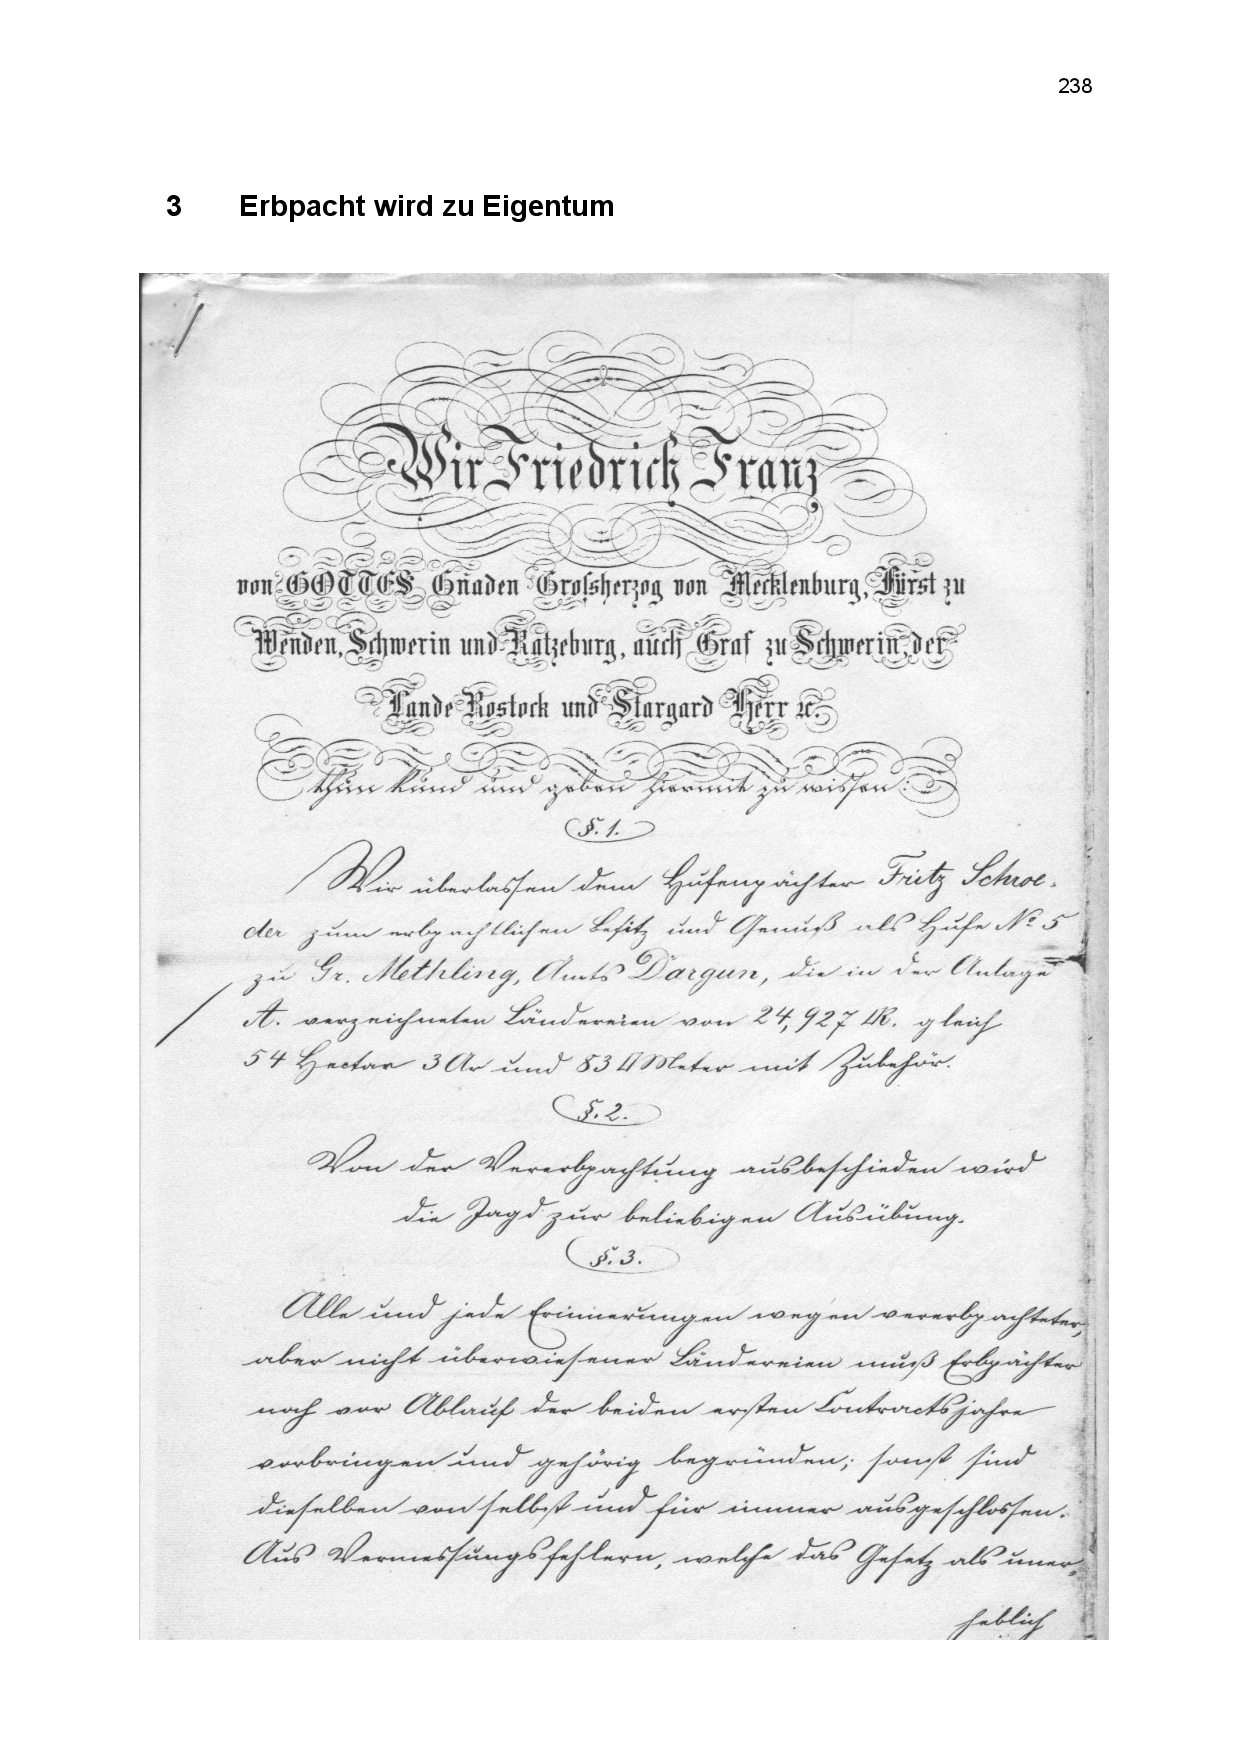 238
3 Erbpacht wird zu Eigentum
Wir Friedrich Franz
von GOTTES Gnaden Grossherzog von Mecklenburg, Fürst zu
Wenden, Schwerin und Ratzeburg, auch Graf zu Schwerin, der
Lande Rostock und Stargard Herr ꝛc.
thun kund und geben hiermit zu wissen:
§. 1.
Wir überlassen dem Hufenpächter Fritz Schroe-
der zum erbpachtlichen Besitz und Genuß als Hufe No 5
zu Gr. Methling, Amts Dargun, die in der Anlage
A. verzeichneten Ländereien von 24,927 □R. gleich
54 Hectar 3 Ar und 83 □Meter mit Zubehör.
§. 2.
Von der Vererbpachtung ausbeschieden wird
die Jagd zur beliebigen Ausübung.
§. 3.
Alle und jede Erinnerungen wegen vererbpachteter,
aber nicht überwiesener Ländereien muß Erbpächter
noch vor Ablauf der beiden ersten Contractsjahre
vorbringen und gehörig begründen; sonst sind
dieselben von selbst und für immer ausgeschlossen.
Aus Vermessungsfehlern, welche das Gesetz als uner-
heblich